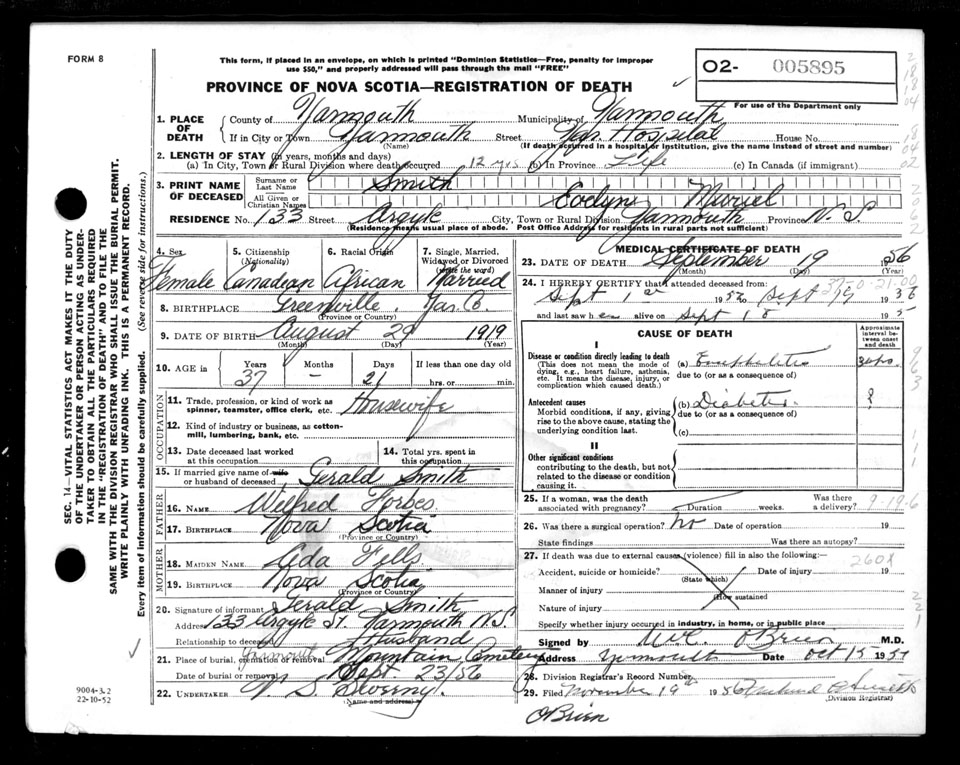 FORM 8
This form, if placed in an envelope, on which is printed "Dominion Statistics—Free, penalty for improper
use $50," and properly addressed will pass through the mail "FREE"
PROVINCE OF NOVA SCOTIA—REGISTRATION OF DEATH
O2- 005895
For use of the Department only
1. PLACE OF DEATH
County of Yarmouth Municipality of Yarmouth
If in City or Town Yarmouth Street Yar. Hospital House No.
(Name) (If death occurred in a hospital or institution, give the name instead of street and number)
2. LENGTH OF STAY (in years, months and days)
(a) In City, Town or Rural Division where death occurred 12 yrs (b) In Province Life (c) In Canada (if immigrant)
3. PRINT NAME OF DECEASED
Surname or Last Name Smith
All Given or Christian Names Evelyne Muriel
RESIDENCE No. 133 Street Argyle City, Town or Rural Division Yarmouth Province N.S.
(Residence means usual place of abode. Post Office Address for residents in rural parts not sufficient)
4. Sex 5. Citizenship (Nationality) 6. Racial Origin 7. Single, Married, Widowed or Divorced (write the word)
Female Canadian African Married
8. BIRTHPLACE Greenville, Yar. Co
(Province or Country)
9. DATE OF BIRTH August 29 1919
(Month) (Day) (Year)
10. AGE in Years Months Days If less than one day
37 - 21 hrs. or min.
OCCUPATION
11. Trade, profession, or kind of work as
spinner, teamster, office clerk, etc. Housewife
12. Kind of industry or business, as cotton-
mill, lumbering, bank, etc.
13. Date deceased last worked at this occupation 14. Total yrs. spent in this occupation
15. If married give name of wife
or husband of deceased Gerald Smith
FATHER
16. NAME Wilfred Forbes
17. BIRTHPLACE Nova Scotia
(Province or Country)
MOTHER
18. MAIDEN NAME Ada Fells
19. BIRTHPLACE Nova Scotia
(Province or Country)
20. Signature of informant Gerald Smith
Address 133 Argyle St. Yarmouth N.S.
Relationship to deceased Husband
21. Place of burial, cremation or removal Yarmouth Mountain Cemetery
Date of burial or removal Sept. 23/56
22. UNDERTAKER V. S. Sweeny.
(Name and address)
MEDICAL CERTIFICATE OF DEATH
23. DATE OF DEATH September 19 1956
(Month) (Day) (Year)
24. I HEREBY CERTIFY that I attended deceased from:
Sept 1st 1952 Sept 19 1956
and last saw her alive on Sept 18 195
CAUSE OF DEATH
Approximate interval between onset and death
I
Disease or condition directly leading to death (a) Encephalitis
(This does not mean the mode of dying, e.g., heart failure, asthenia, etc. It means the disease, injury, or complication which caused death.) due to (or as a consequence of)
Antecedent causes (b) Diabetes ?
Morbid conditions, if any, giving rise to the above cause, stating the underlying condition last. due to (or as a consequence of)
(c)
II
Other significant conditions
contributing to the death, but not related to the disease or condition causing it.
25. If a woman, was the death associated with pregnancy? Duration weeks. Was there a delivery?
26. Was there a surgical operation? no Date of operation 19
State findings Was there an autopsy?
27. If death was due to external causes (violence) fill in also the following:
Accident, suicide or homicide? Date of injury 19
(State which)
Manner of injury
(How sustained
Nature of injury
260X
Specify whether injury occurred in industry, in home, or in public place
Signed by O'Brien M.D.
Address Yarmouth Date Oct 15 1957
28. Division Registrar's Record Number
29. Filed November 19th 1956
(Division Registrar)
O'Brien
SEC. 14—VITAL STATISTICS ACT MAKES IT THE DUTY
OF THE UNDERTAKER OR PERSON ACTING AS UNDER-
TAKER TO OBTAIN ALL THE PARTICULARS REQUIRED
IN THE "REGISTRATION OF DEATH" AND TO FILE THE
SAME WITH THE DIVISION REGISTRAR WHO SHALL ISSUE THE BURIAL PERMIT.
WRITE PLAINLY WITH UNFADING INK. THIS IS A PERMANENT RECORD.
Every item of information should be carefully supplied. (See reverse side for instructions.)
9004-3.2
22-10-52